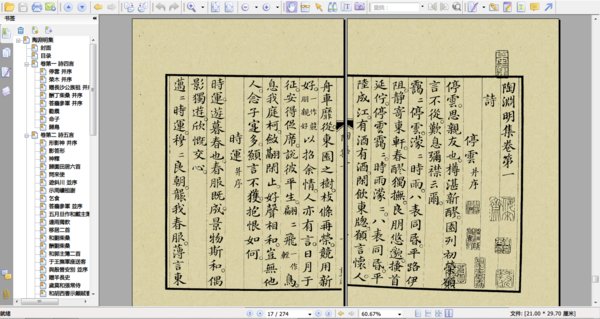 书签
陶渊明集
封面
目录
卷第一 詩四言
停雲 并序
榮木 并序
贈長沙公族祖 并序
酬丁柴桑 并序
答龐參軍 并序
勸農
命子
歸鳥
卷第二 詩五言
形影神 并序
影答形
神釋
歸園田居六首
問來使
遊斜川 並序
乞食
答龐參軍 並序
五月旦作和戴主簿
連雨獨飲
移居二首
和劉柴桑
酬劉柴桑
和郭主簿二首
于王撫軍座送客
與殷晉安別 並序
贈羊長史
歲莫和張常侍
和胡西曹示顧賊曹
陶淵明集卷第一
詩
停雲 并序
停雲思親友也罇湛新醪園列初榮願
言不從歎息彌襟云爾
靄ニ停雲濛ニ時雨八表同昏平路伊
阻靜寄東軒春醪獨撫良朋悠邈搔首
延佇停雲靄ニ時雨濛ニ八表同昏平
陸成江有酒有酒閒飲東牕願言懷人
舟車靡從東園之樹枝條再榮競用新
好以招余情人亦有言日月于
征安得促席說彼平生翩ニ飛鳥
息我庭柯斂翮閒止好聲相和豈無他
人念子寔多願言不獲抱恨如何
時運 并序
時運遊暮春也春服既成景物斯和偶
影獨遊欣慨交心
邁ニ時運穆ニ良朝襲我春服薄言東
就绪
17 / 274
60.67%
文件: [21.00 * 29.70 厘米]